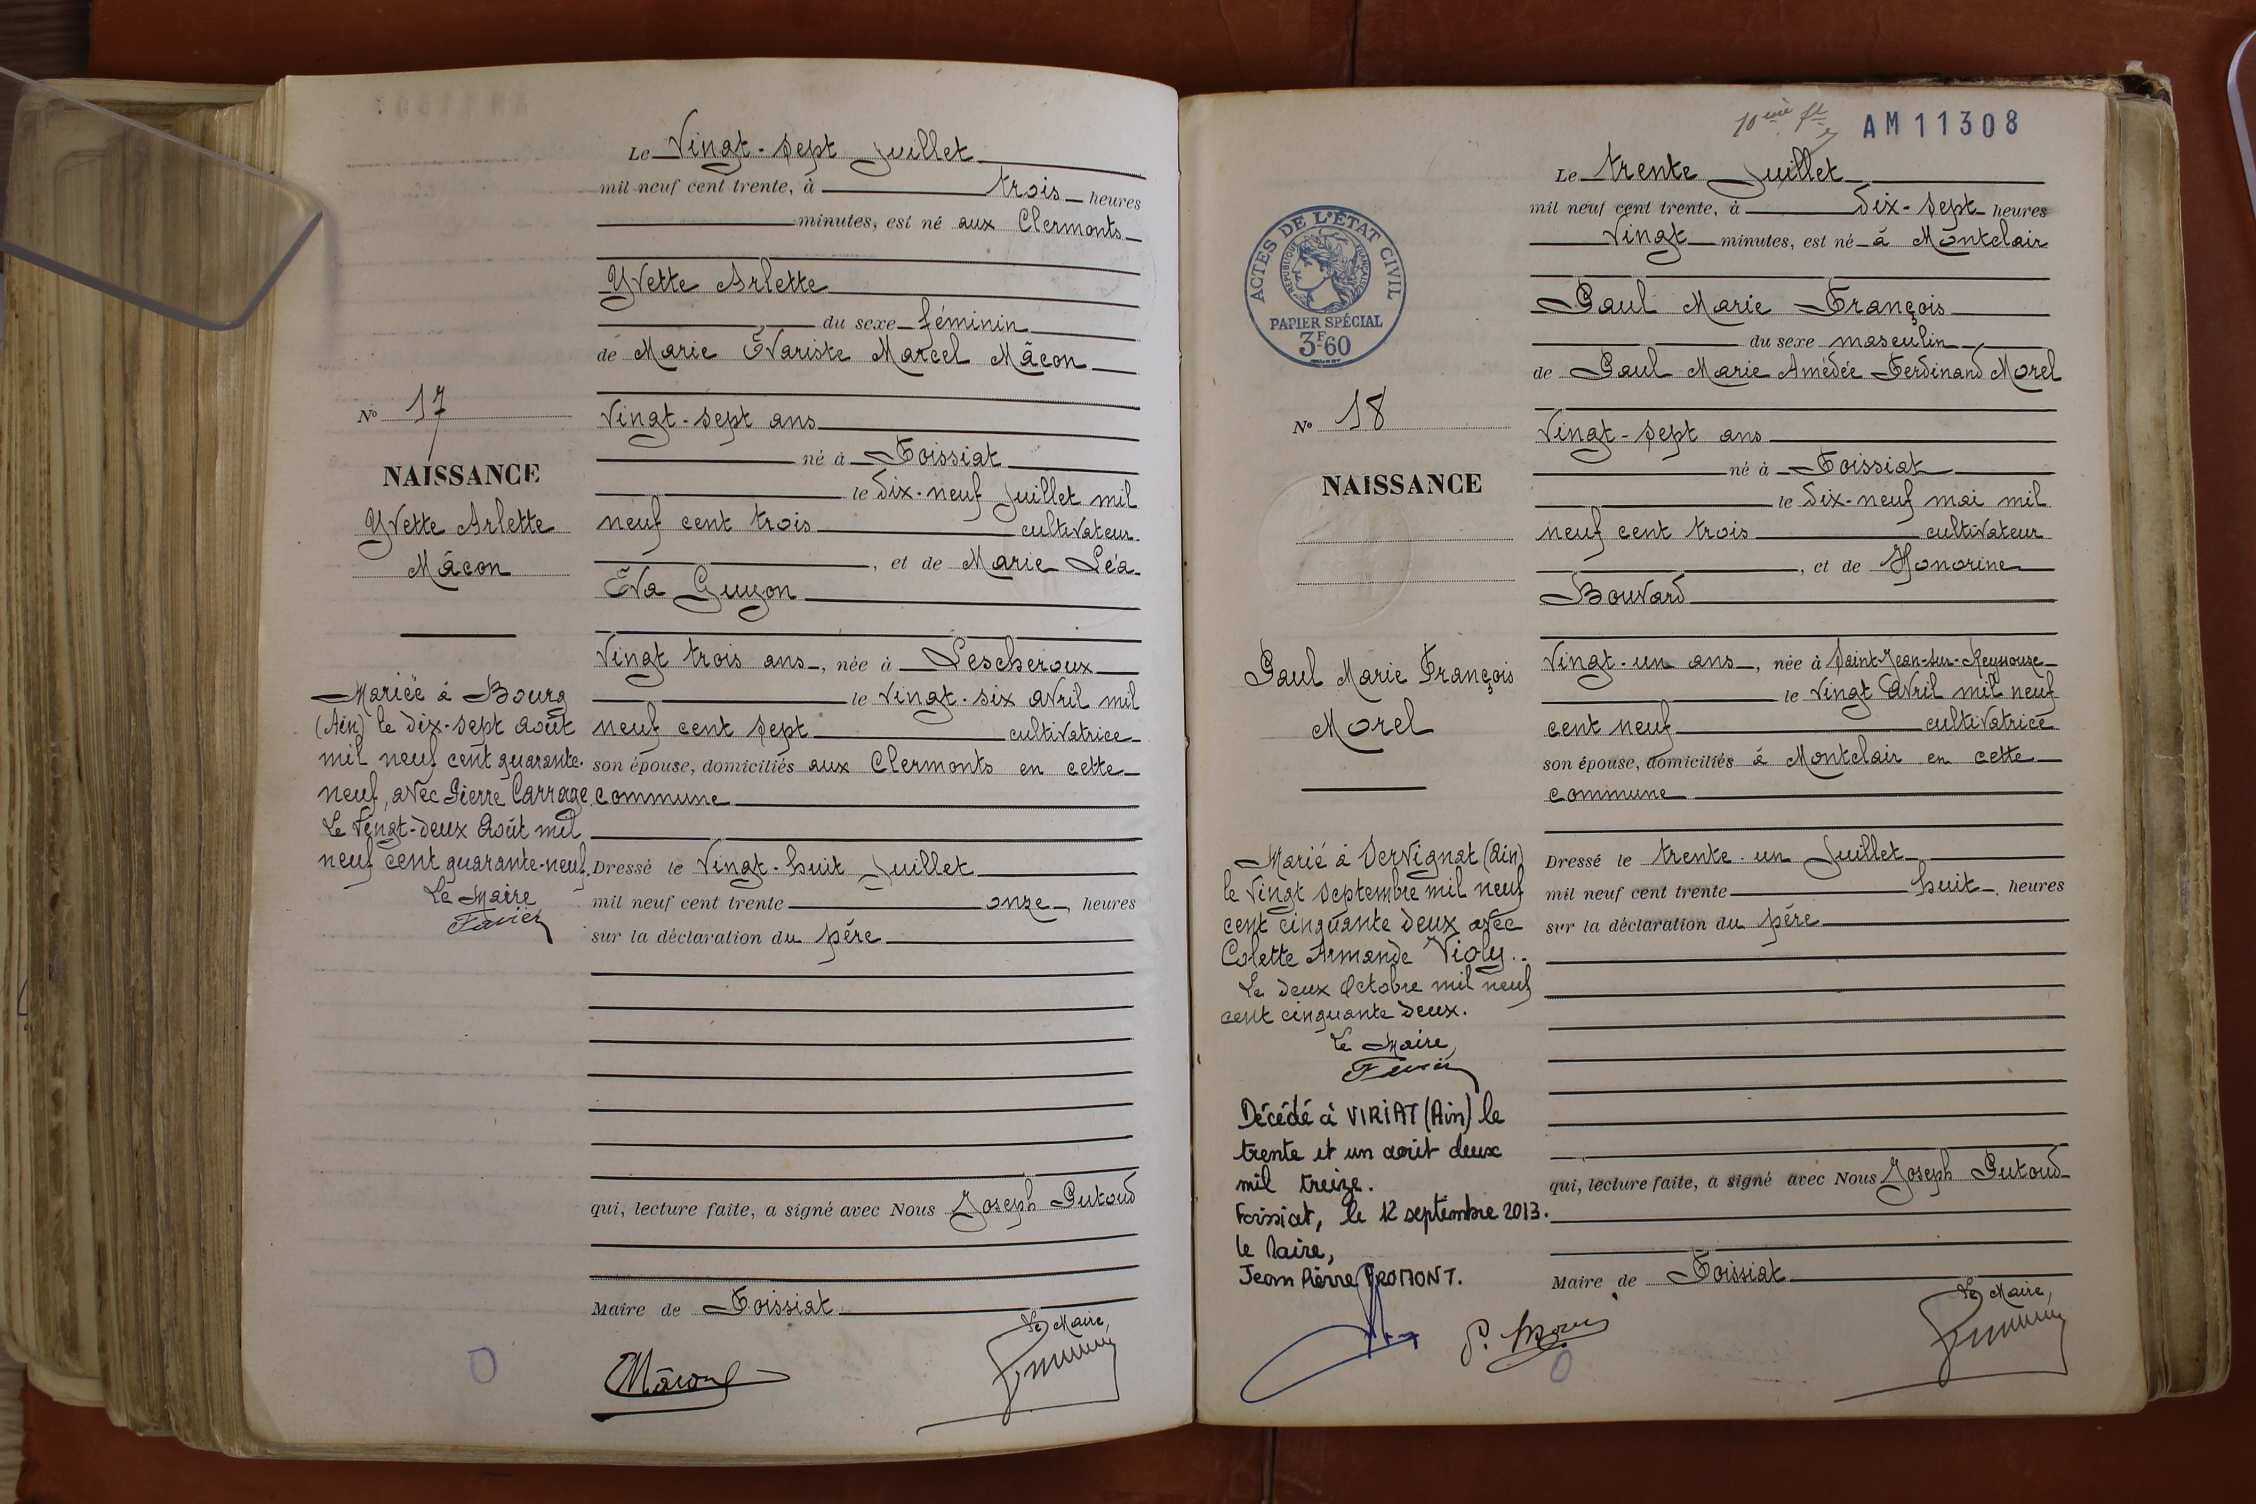 Le Vingt-sept Juillet
mil neuf cent trente, à trois heures
minutes, est né aux Clermonts
Yvette Arlette
du sexe féminin
de Marie Évariste Marcel Mâcon
Vingt-sept ans
né à Foissiat
le dix-neuf Juillet mil
neuf cent trois cultivateur
, et de Marie Léa
Éva Guyon
Vingt trois ans, née à Lescheroux
le vingt-six avril mil
neuf cent sept cultivatrice
son épouse, domiciliés aux Clermonts en cette
commune
Dressé le Vingt-huit Juillet
mil neuf cent trente onze, heures
sur la déclaration du père
qui, lecture faite, a signé avec Nous Joseph Putoud
Maire de Foissiat
Le Maire,
Mâcon
No 17
NAISSANCE
Yvette Arlette
Mâcon
Mariée à Bourg
(Ain) le dix-sept août
mil neuf cent quarante-
neuf, avec Pierre Carrage
Le Vingt-deux Août mil
neuf cent quarante-neuf.
Le Maire
AM 11308
Le trente Juillet
mil neuf cent trente, à Dix-sept heures
Vingt minutes, est né à Montclair
Paul Marie François
du sexe masculin
de Paul Marie Amédée Ferdinand Morel
Vingt-sept ans
né à Foissiat
le Dix-neuf mai mil
neuf cent trois cultivateur
, et de Honorine
Bouvard
Vingt-un ans, née à Saint-Jean-sur-Reyssouze
le vingt Avril mil neuf
cent neuf cultivatrice
son épouse, domiciliés à Montclair en cette
commune
Dressé le trente-un Juillet
mil neuf cent trente huit, heures
sur la déclaration du père
qui, lecture faite, a signé avec Nous Joseph Putoud
Maire de Foissiat
Le Maire,
ACTES DE L'ÉTAT CIVIL
RÉPUBLIQUE FRANÇAISE
PAPIER SPÉCIAL
3F60
No 18
NAISSANCE
Paul Marie François
Morel
Marié à Servignat (Ain)
le Vingt Septembre mil neuf
cent cinquante deux avec
Colette Armande Violy..
Le deux Octobre mil neuf
cent cinquante deux.
Le Maire,
Décédé à VIRIAT (Ain) le
trente et un août deux
mil treize.
Foissiat, le 12 septembre 2013.
le Maire,
Jean Pierre FROMONT.